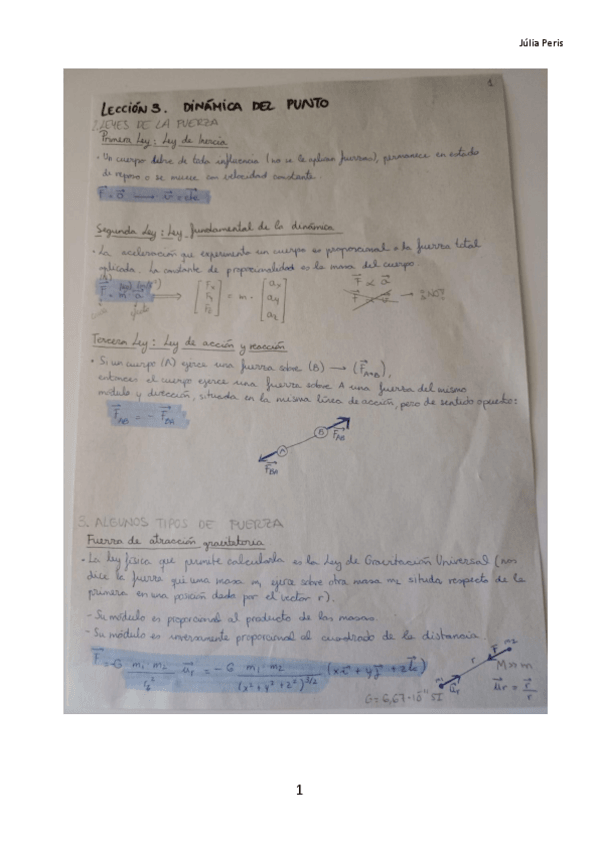 Júlia Peris
1
LECCIÓN 3. DINÁMICA DEL PUNTO
2. LEYES DE LA FUERZA
Primera Ley: Ley de Inercia
• Un cuerpo libre de toda influencia (no se le aplican fuerzas), permanece en estado
de reposo o se mueve con velocidad constante.
F⃗ = 0⃗ → v⃗ = cte
Segunda Ley: Ley fundamental de la dinámica
• La aceleración que experimenta un cuerpo es proporcional a la fuerza total
aplicada. La constante de proporcionalidad es la masa del cuerpo.
(N) (kg) (m/s²)
F⃗ = m · a⃗ ⟹ [Fx Fy Fz] = m · [ax ay az]
F⃗ ∝ a⃗
F⃗ ∝ v⃗ → ¡¡NO!!
Tercera Ley: Ley de acción y reacción
• Si un cuerpo (A) ejerce una fuerza sobre (B) → (F⃗A→B),
entonces el cuerpo ejerce una fuerza sobre A una fuerza del mismo
módulo y dirección, situada en la misma línea de acción, pero de sentido opuesto:
F⃗AB = − F⃗BA
B F⃗AB
A
F⃗BA
3. ALGUNOS TIPOS DE FUERZA
Fuerza de atracción gravitatoria
• La ley física que permite calcularla es la Ley de Gravitación Universal (nos
dice la fuerza que una masa m₁ ejerce sobre otra masa m₂ situada respecto de la
primera en una posición dada por el vector r).
- Su módulo es proporcional al producto de las masas.
- Su módulo es inversamente proporcional al cuadrado de la distancia.
F⃗ = −G m₁·m₂/r² u⃗r = −G m₁·m₂/(x²+y²+z²)^3/2 (xi⃗ + yj⃗ + zk⃗)
m2
F⃗
r
M>>m
m1
u⃗r
u⃗r = r⃗/r
G = 6,67·10⁻¹¹ SI
1